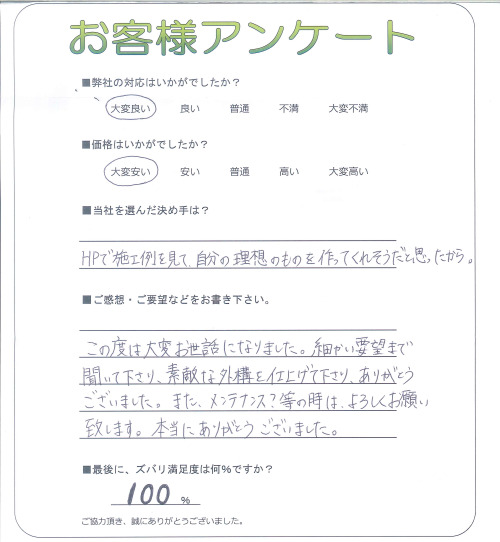 お客様アンケート
■弊社の対応はいかがでしたか？
大変良い 良い 普通 不満 大変不満
■価格はいかがでしたか？
大変安い 安い 普通 高い 大変高い
■当社を選んだ決め手は？
HPで施工例を見て、自分の理想のものを作ってくれそうだと思ったから。
■ご感想・ご要望などをお書き下さい。
この度は大変お世話になりました。細かい要望まで
聞いて下さり、素敵な外構を仕上げて下さり、ありがとう
ございました。また、メンテナンス？等の時は、よろしくお願い
致します。本当にありがとうございました。
■最後に、ズバリ満足度は何%ですか？
100 %
ご協力頂き、誠にありがとうございました。